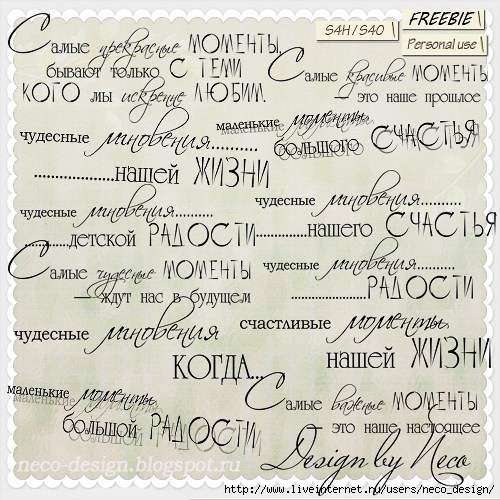 S4H/S4O
FREEBIE
Personal use
Самые прекрасные МОМЕНТЫ
бывают только С ТЕМИ
КОГО мы искренне ЛЮБИМ.
Самые красивые МОМЕНТЫ
— это наше прошлое
чудесные мгновения..........
...................нашей ЖИЗНИ
маленькие моменты
большого СЧАСТЬЯ
чудесные мгновения..........
............детской РАДОСТИ
чудесные мгновения..........
............нашего СЧАСТЬЯ
Самые чудесные МОМЕНТЫ
— ждут нас в будущем
чудесные мгновения..........
..................РАДОСТИ
чудесные мгновения
КОГДА...
счастливые моменты
нашей ЖИЗНИ
маленькие моменты
большой РАДОСТИ
Самые важные МОМЕНТЫ
это наше настоящее
Design by Neco
neco-design.blogspot.ru
http://www.liveinternet.ru/users/neco_design/